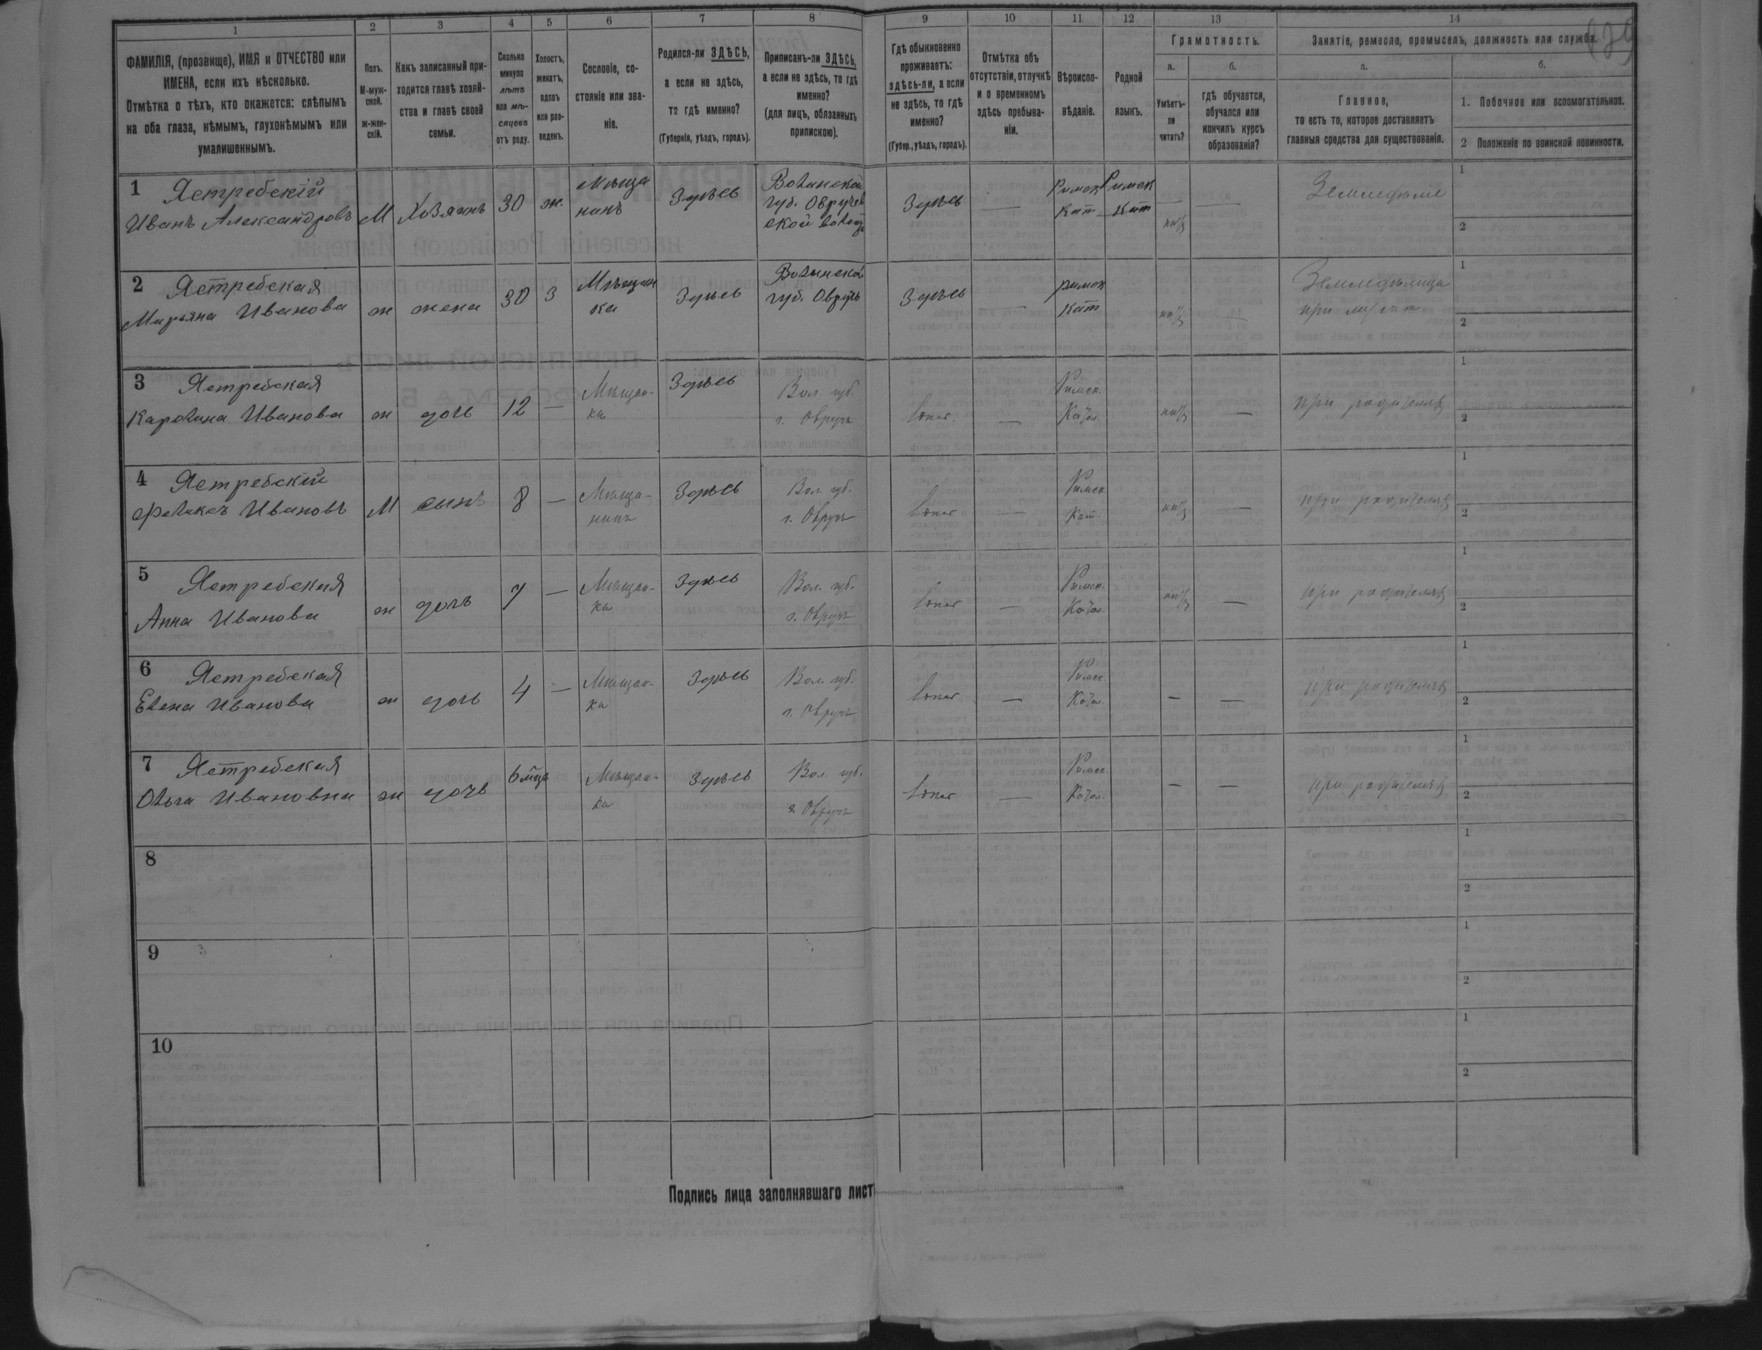 1 2 3 4 5 6 7 8 9 10 11 12 13 14
ФАМИЛІЯ, (прозвище), ИМЯ и ОТЧЕСТВО или
ИМЕНА, если ихъ нѣсколько.
Отмѣтка о тѣхъ, кто окажется: слѣпымъ
на оба глаза, нѣмымъ, глухонѣмымъ или
умалишеннымъ.
Полъ.
М-муж-
ской.
ж-жен-
скій.
Какъ записанный при-
ходится главѣ хозяй-
ства и главѣ своей
семьи.
Сколько
минуло
лѣтъ
или мѣ-
сяцевъ
отъ роду.
Холостъ,
женатъ,
вдовъ
или раз-
веденъ.
Сословіе, со-
стояніе или зва-
ніе.
Родился-ли ЗДѢСЬ,
а если не здѣсь,
то гдѣ именно?
(Губернія, уѣздъ, городъ).
Приписанъ-ли ЗДѢСЬ,
а если не здѣсь, то гдѣ
именно?
(для лицъ, обязанныхъ
припискою).
Гдѣ обыкновенно
проживаетъ:
здѣсь-ли, а если
не здѣсь, то гдѣ
именно?
(Губер., уѣздъ, городъ).
Отмѣтка объ
отсутствіи, отлучкѣ
и о временномъ
здѣсь пребыва-
ніи.
Вѣроиспо-
вѣданіе.
Родной
языкъ.
Грамотность.
а.
Умѣетъ-
ли
читать?
б.
гдѣ обучается,
обучался или
кончилъ курсъ
образованія?
Занятіе, ремесло, промыселъ, должность или служба.
а.
Главное,
то есть то, которое доставляетъ
главныя средства для существованія.
б.
1. Побочное или вспомогательное.
2 Положеніе по воинской повинности.
1 Ястребскій
Иванъ Александровъ М Хозяинъ 30 ж. Мѣща
нинъ Здѣсь Волынской
губ. Овруч
ской Здѣсь — Римск
Кат Римск
Кат — — 1
2
2 Ястребская
Марьяна Иванова ж жена 30 З Мѣщан
ка Здѣсь Волынской
губ. Овручъ Здѣсь — римск
Кат — 1
2
3 Ястребская
Каролина Иванова ж дочь 12 — Мѣщан-
ка Здѣсь Вол. губ.
г. Овручъ — Римск.
Катол. — при родителяхъ 1
2
4 Ястребскій
Феликсъ Ивановъ М сынъ 8 — Мѣща-
нинъ Здѣсь Вол. губ.
г. Овручъ — Римск
Кат. — при родителяхъ 1
2
5 Ястребская
Анна Иванова ж дочь 7 — Мѣщан-
ка Здѣсь Вол. губ.
г. Овручъ — Римск.
Катол. — при родителяхъ 1
2
6 Ястребская
Елена Иванова ж дочь 4 — Мѣщан-
ка Здѣсь Вол. губ.
г. Овручъ — Римск
Катол. — — при родителяхъ 1
2
7 Ястребская
Ольга Ивановна ж дочь 6 мѣця Мѣщан-
ка Здѣсь Вол. губ.
г. Овручъ — Римск
Катол. — — при родителяхъ 1
2
8 1
2
9 1
2
10 1
2
Подпись лица заполнявшаго лист